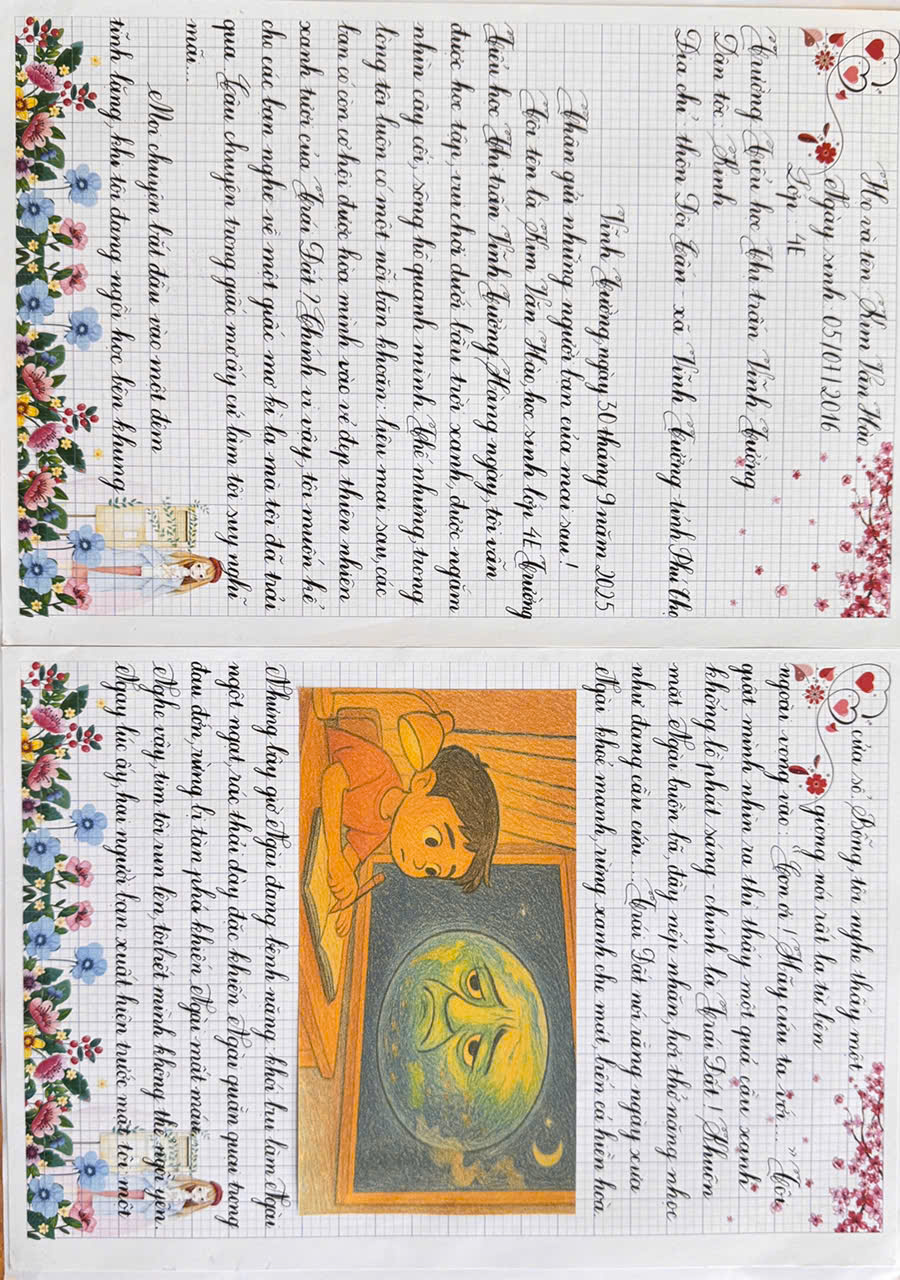 Họ và tên Kim Văn Hào
Ngày sinh 05/01/2016
Lớp: 4E
Trường Tiểu học Thị trấn Vĩnh Tường
Dân tộc: Kinh
Địa chỉ: thôn Đội Cấn xã Vĩnh Tường tỉnh Phú Thọ
Vĩnh Tường, ngày 30 tháng 9 năm 2025
Thân gửi những người bạn của mai sau!
Tôi tên là Kim Văn Hào, học sinh lớp 4E Trường
Tiểu học Thị trấn Vĩnh Tường. Hàng ngày, tôi vẫn
được học tập, vui chơi dưới bầu trời xanh, được ngắm
nhìn cây cối, sông hồ quanh mình. Thế nhưng, trong
lòng tôi luôn có một nỗi băn khoăn: liệu mai sau, các
bạn có còn cơ hội được hòa mình vào vẻ đẹp thiên nhiên
xanh tươi của Trái Đất? Chính vì vậy, tôi muốn kể
cho các bạn nghe về một giấc mơ kì lạ mà tôi đã trải
qua. Câu chuyện trong giấc mơ ấy cứ làm tôi suy nghĩ
mãi...
Mọi chuyện bắt đầu vào một đêm
tĩnh lặng, khi tôi đang ngồi học bên khung
cửa sổ. Bỗng, tôi nghe thấy một
giọng nói rất lạ từ bên
ngoài vọng vào: Con ơi! Hãy cứu ta với..." Tôi
giật mình nhìn ra thì thấy một quả cầu xanh
khổng lồ phát sáng - chính là Trái Đất! Khuôn
mặt Ngài buồn bã, đầy nếp nhăn, hơi thở nặng nhọc
như đang cầu cứu... Trái Đất nói rằng ngày xưa
Ngài khoẻ mạnh, rừng xanh che mát, biển cả hiền hòa.
Nhưng bây giờ Ngài đang bệnh nặng: khói bụi làm Ngài
ngột ngạt, rác thải dày đặc khiến Ngài quằn quại trong
đau đớn, rừng bị tàn phá khiến Ngài mất máu.
Nghe vậy, tim tôi run lên, tôi biết mình không thể ngồi yên.
Ngay lúc ấy, hai người bạn xuất hiện trước mắt tôi: một